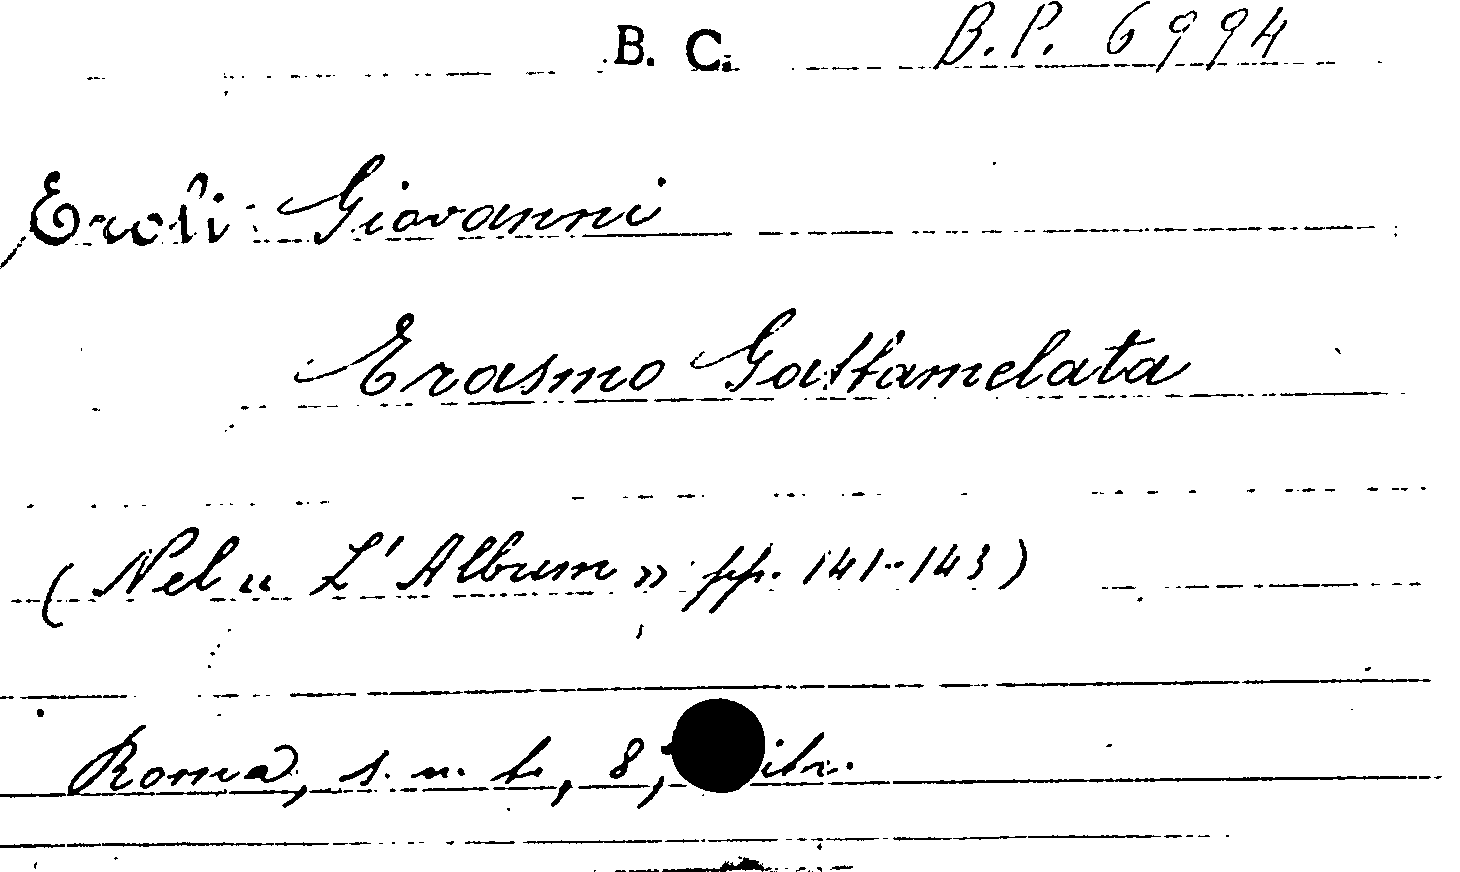 B. C. B.P. 6994
Eroli Giovanni
Erasmo Gattamelata
(Nel « L'Album » pp. 141-143)
Roma, s. n. t., 8,